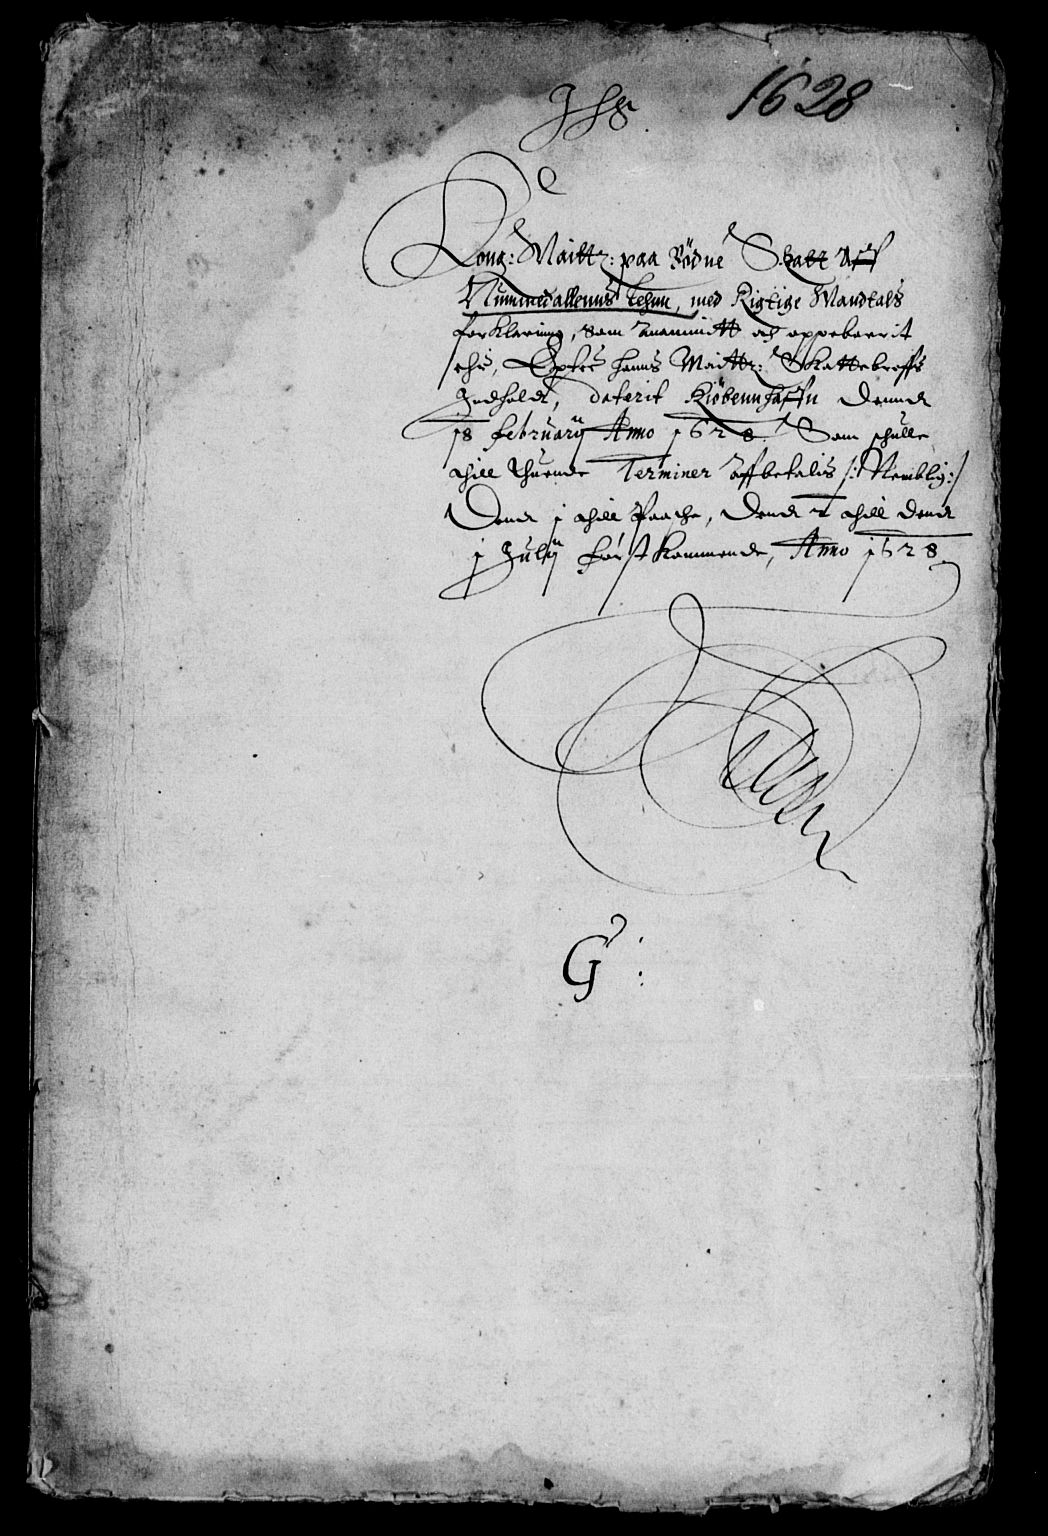 1628
JHS
Kong: Maitts: paa Bödne Skatt Aff
Nummedallenns Lehnn, med Rigtige Mandtals
forKlaring, som Anammitt och oppebaarit
ehr, Epter hanns Maitts: Skattebreffs
Indhold, daterit Kiöbennhaffn Dennd
18 februarij Anno 1628. Som schulle
thill thuende Terminer Affbetalis /: Nemblig :/
Dend 1 thill Paasche, Dend 2 thill dend
1 Julij först Kommende, Anno 1628
G: